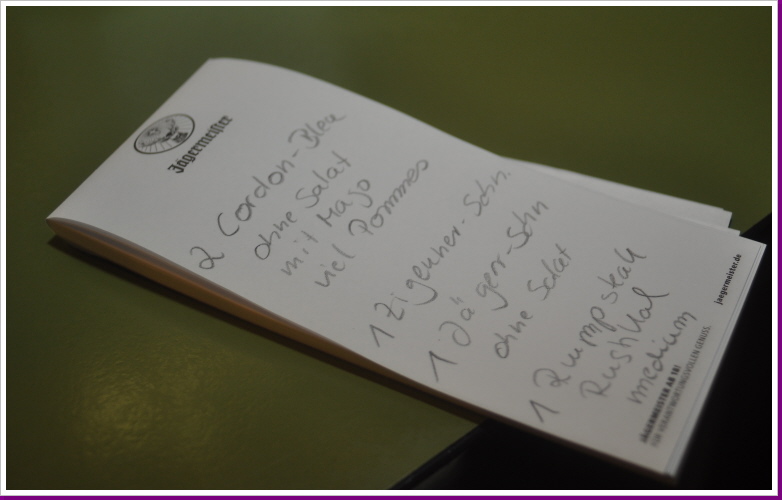 Jägermeister
2 Cordon-Bleu
ohne Salat
mit Mayo
viel Pommes
1 Zigeuner-Schn.
1 Jäger-Schn
ohne Salat
1 Rumpsteak
medium
jaegermeister.de
JÄGERMEISTER AB 18!
FÜR VERANTWORTUNGSVOLLEN GENUSS.